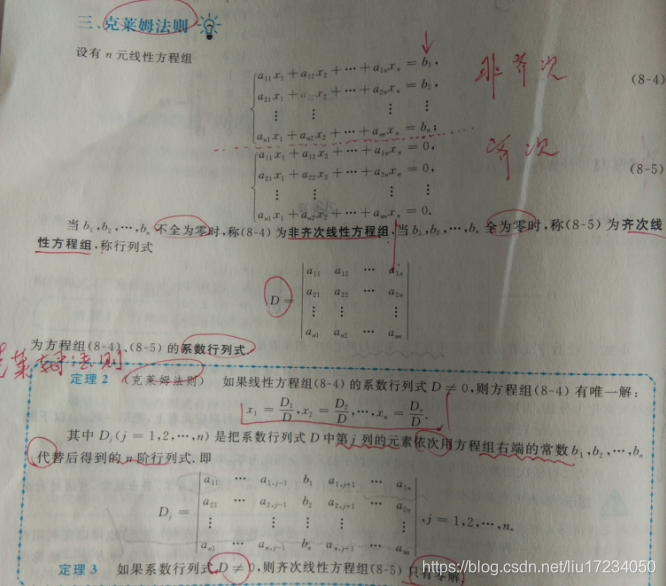 三、克莱姆法则
设有 n 元线性方程组
a₁₁x₁ + a₁₂x₂ + ⋯ + a₁ₙxₙ = b₁, 非齐次
a₂₁x₁ + a₂₂x₂ + ⋯ + a₂ₙxₙ = b₂, (8-4)
⋮ ⋮ ⋮ ⋮
aₙ₁x₁ + aₙ₂x₂ + ⋯ + aₙₙxₙ = bₙ;
a₁₁x₁ + a₁₂x₂ + ⋯ + a₁ₙxₙ = 0, 齐次
a₂₁x₁ + a₂₂x₂ + ⋯ + a₂ₙxₙ = 0, (8-5)
⋮ ⋮ ⋮ ⋮
aₙ₁x₁ + aₙ₂x₂ + ⋯ + aₙₙxₙ = 0.
当 b₁,b₂,⋯,bₙ 不全为零时,称(8-4)为非齐次线性方程组.当 b₁,b₂,⋯,bₙ 全为零时,称(8-5)为齐次线
性方程组.称行列式
a₁₁ a₁₂ ⋯ a₁ₙ
D = a₂₁ a₂₂ ⋯ a₂ₙ
⋮ ⋮ ⋮
aₙ₁ aₙ₂ ⋯ aₙₙ
为方程组(8-4)、(8-5)的系数行列式.
莱姆法则
定理 2 (克莱姆法则) 如果线性方程组(8-4)的系数行列式 D ≠ 0,则方程组(8-4)有唯一解:
x₁ = D₁/D, x₂ = D₂/D, ⋯, xₙ = Dₙ/D.
其中 Dⱼ(j = 1,2,⋯,n)是把系数行列式 D 中第 j 列的元素依次用方程组右端的常数 b₁,b₂,⋯,bₙ
代替后得到的 n 阶行列式.即
a₁₁ ⋯ a₁,ⱼ₋₁ b₁ a₁,ⱼ₊₁ ⋯ a₁ₙ
Dⱼ = a₂₁ ⋯ a₂,ⱼ₋₁ b₂ a₂,ⱼ₊₁ ⋯ a₂ₙ ,j = 1,2,⋯,n.
⋮ ⋮ ⋮ ⋮ ⋮
aₙ₁ ⋯ aₙ,ⱼ₋₁ bₙ aₙ,ⱼ₊₁ ⋯ aₙₙ
定理 3 如果系数行列式 D ≠ 0,则齐次线性方程组(8-5)只有零解.
https://blog.csdn.net/liu17234050